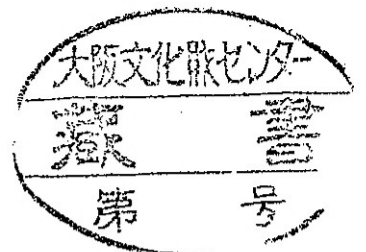 大阪文化財センター
蔵書
第 号